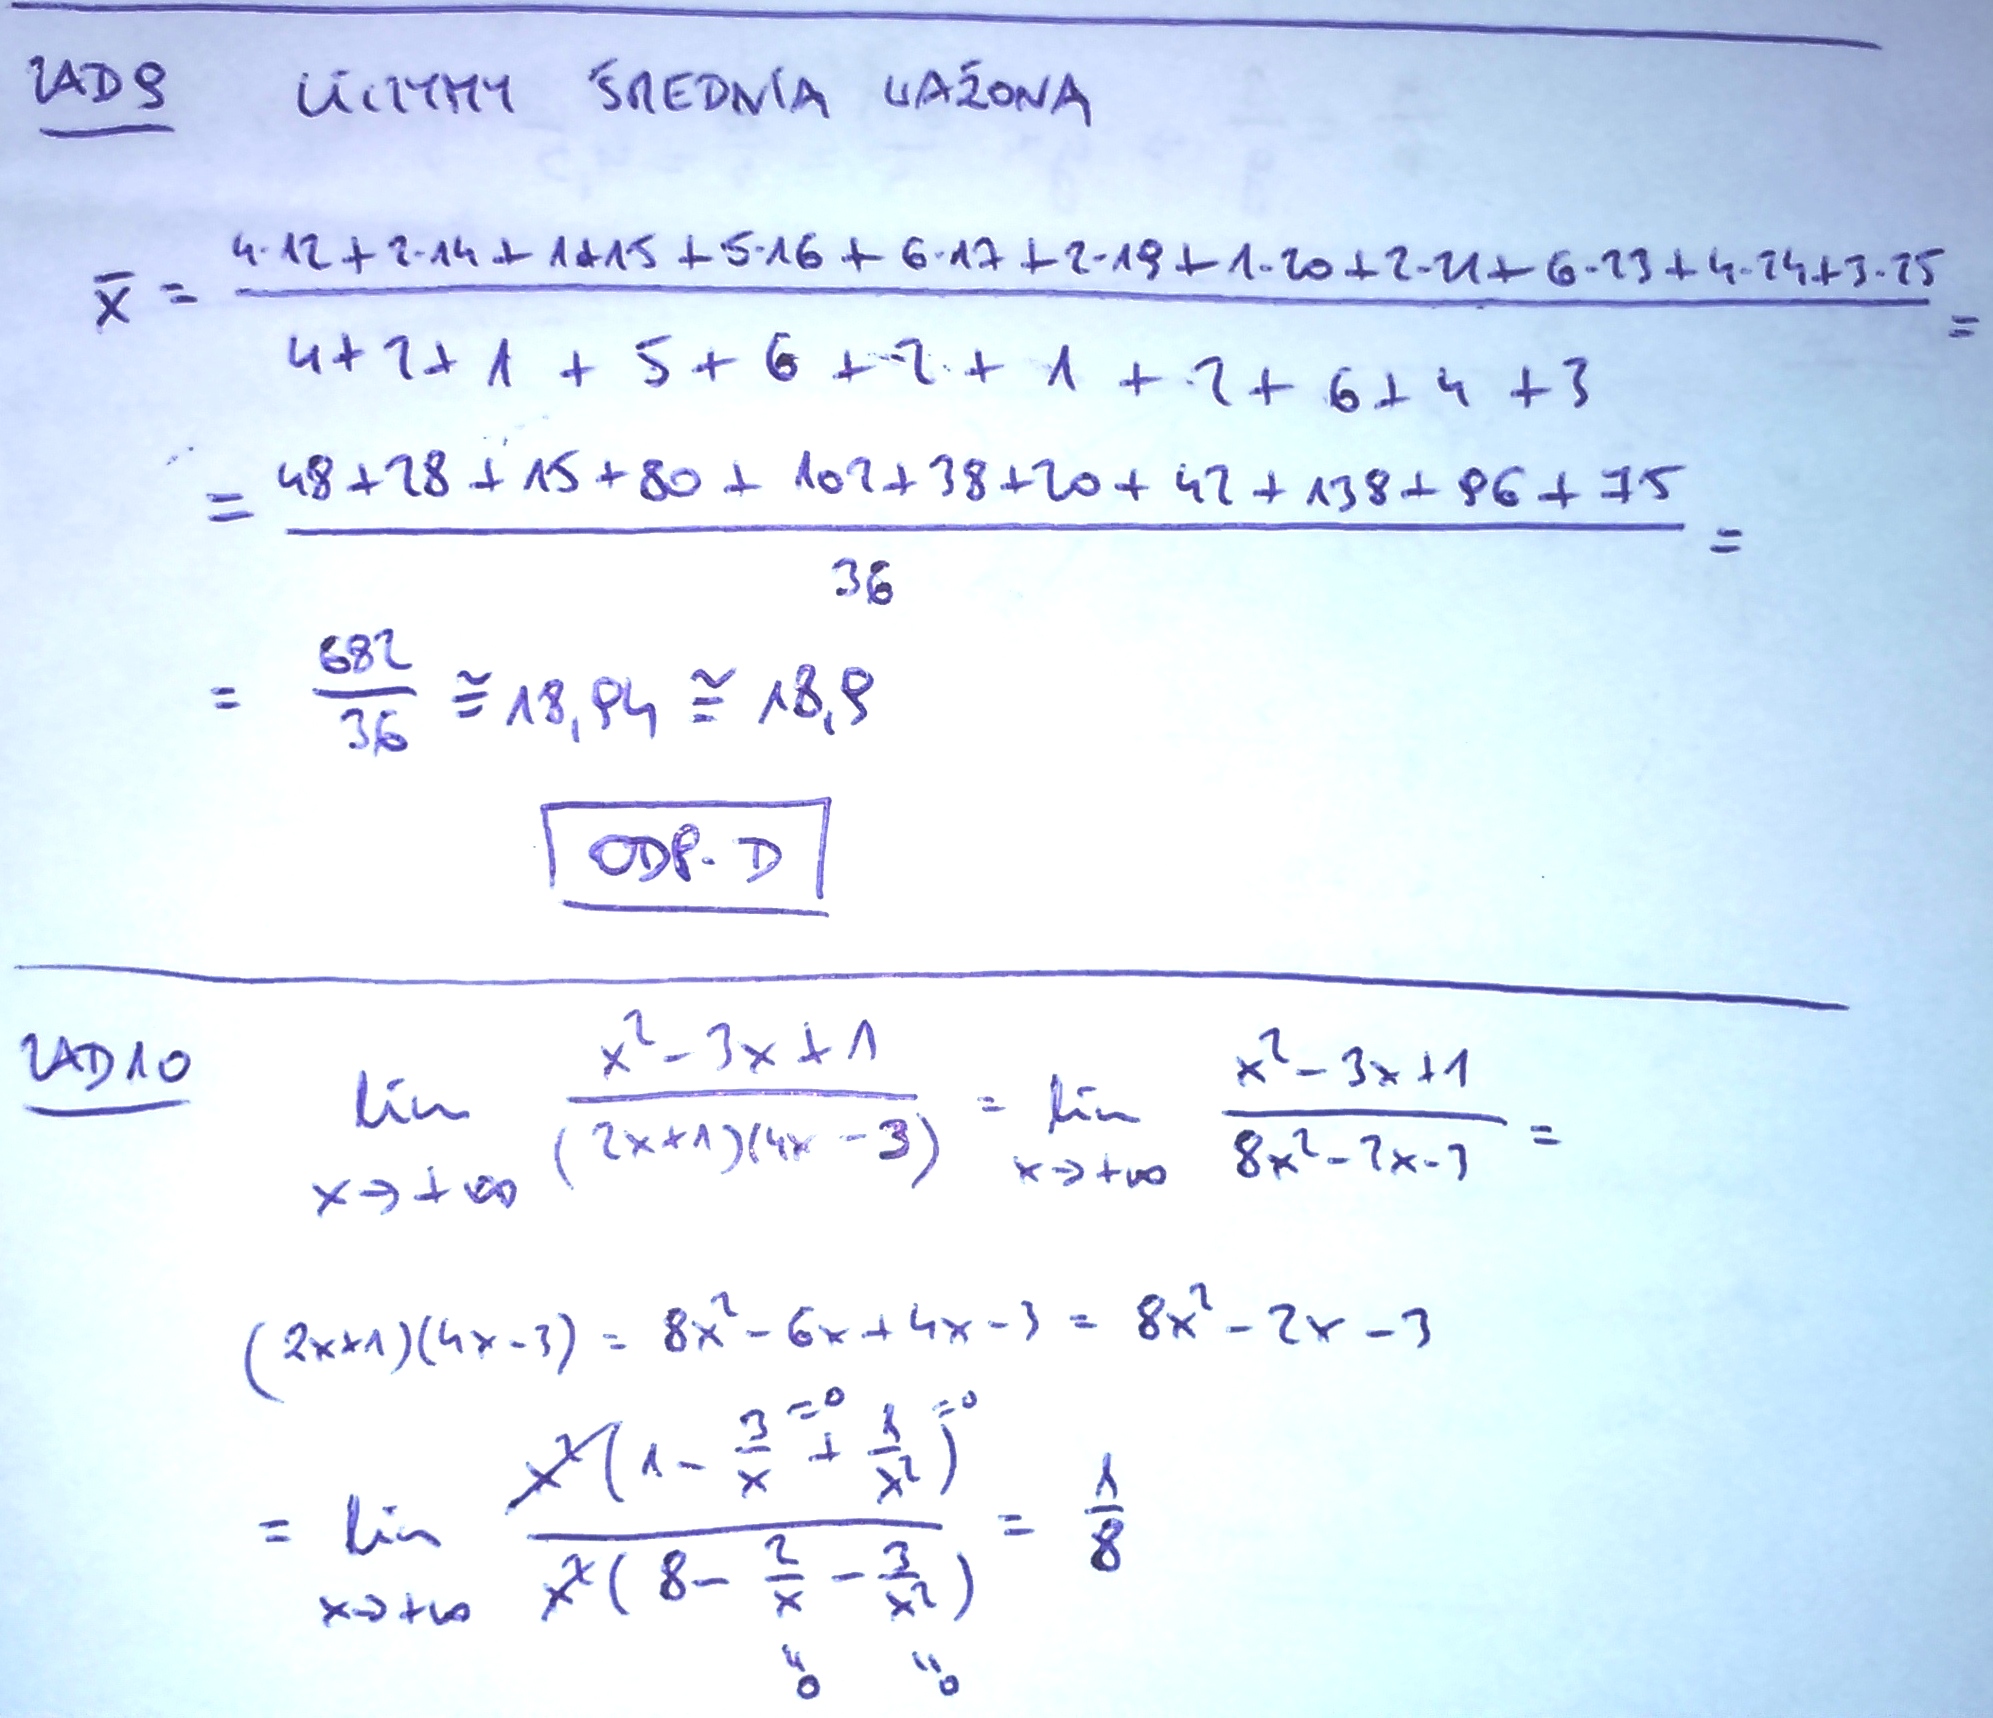 ZAD 9 LICZYMY ŚREDNIĄ WAŻONĄ
x̄ = (4·12+2·14+1+15+5·16+6·17+2·19+1·20+2·21+6·23+4·24+3·25)/(4+2+1+5+6+2+1+2+6+4+3) =
= (48+28+15+80+102+38+20+42+138+96+75)/36 =
= 682/36 ≅ 18,94 ≅ 18,9
ODP. D
ZAD 10 lim x→+∞ (x²-3x+1)/((2x+1)(4x-3)) = lim x→+∞ (x²-3x+1)/(8x²-2x-3) =
(2x+1)(4x-3) = 8x²-6x+4x-3 = 8x²-2x-3
= lim x→+∞ (x²(1-3/x+1/x²))/(x²(8-2/x-3/x²)) = 1/8
=0 =0
"0 "0